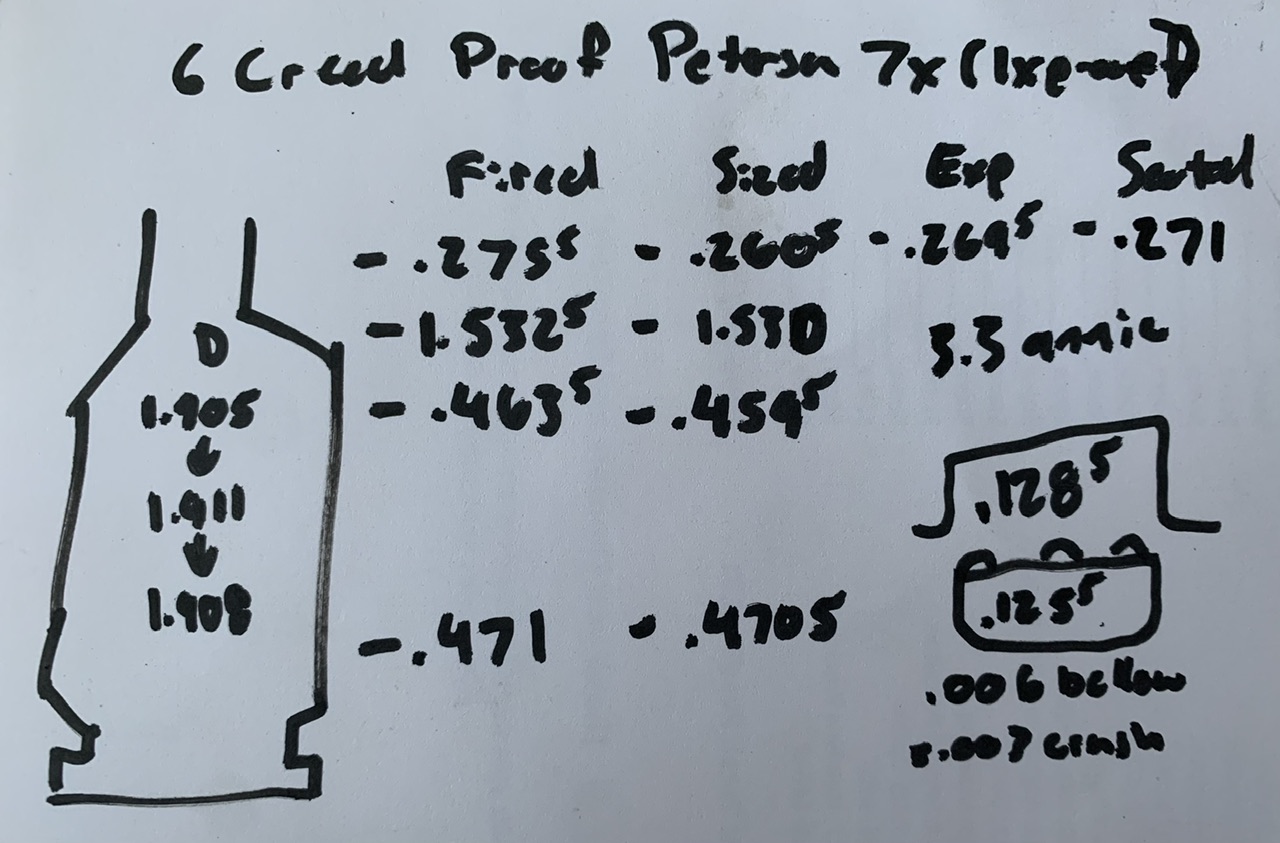 6 Creed Proof Peterson 7x (1xp-wet)
Fired Sized Exp Seated
- .275⁵ - .260⁵ - .269⁵ - .271
- 1.532⁵ - 1.530 3.3 annie
- .463⁵ - .459⁵
D
1.905
1.911
1.908
- .471 - .4705
.128⁵
.125⁵
.006 bellow
.003 crush